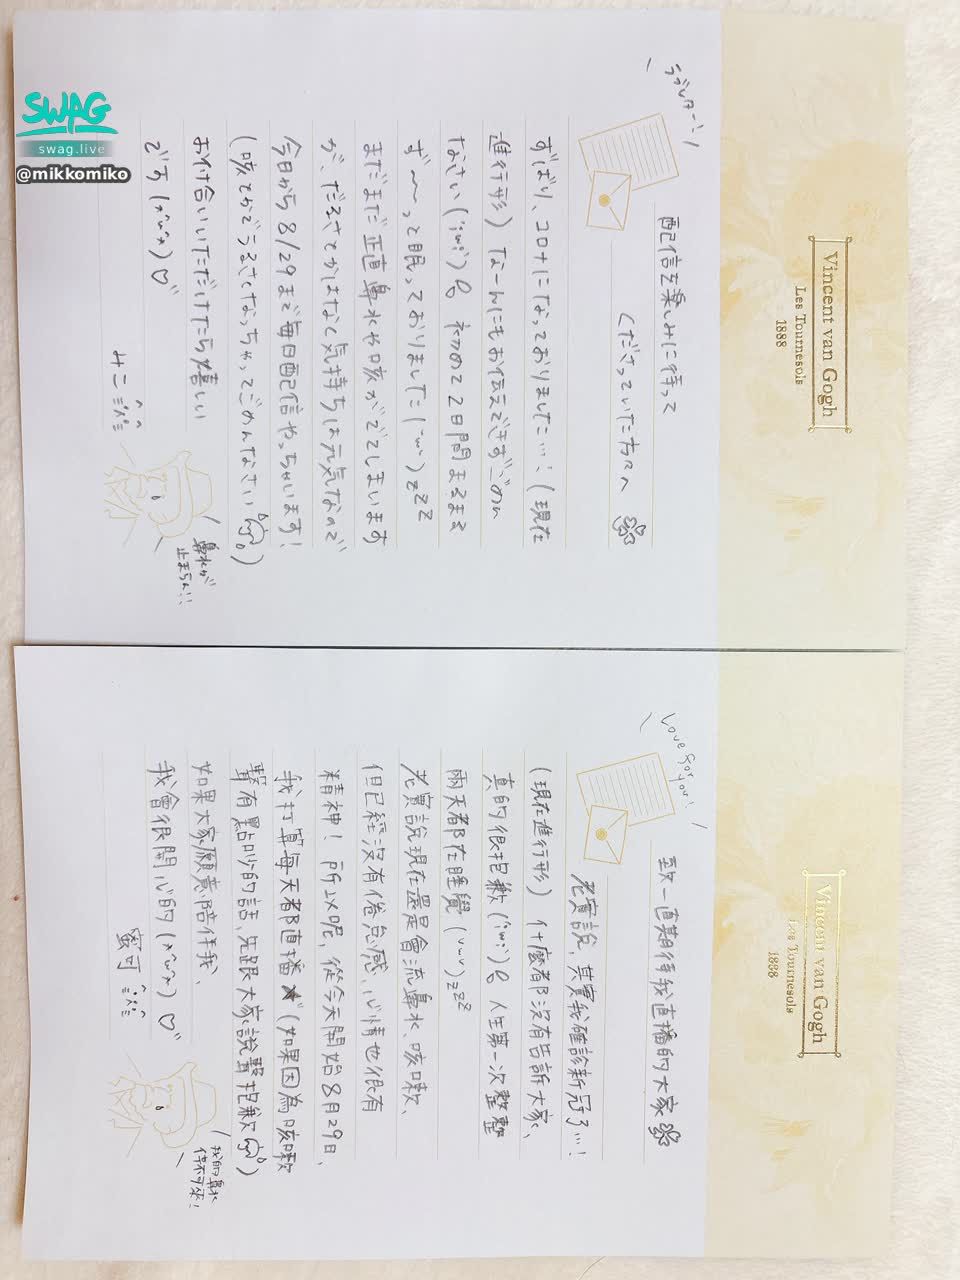 SWAG
swag.live
@mikkomiko
Vincent van Gogh
Les Tournesols
1888
ラブレター!!
配信を楽しみに待って
くださっていた方々へ
ずばり、コロナになっておりました…!(現在
進行形) なーんにもお伝えできずごめん
なさい(;ω;) 初めて2日間まるまる
ず〜〜っと眠っておりました(˘ω˘)zzz
まだまだ正直鼻水や咳がでてしまいます
が、だるさとかはなく気持ちは元気なので
今日から8/29まで毎日配信やっちゃいます!
(咳とかでうるさくなっちゃってごめんなさい)
お付合いいただけたら嬉しい
です(*^ω^*)♡
みこ
鼻水が
止まらん!!
Vincent van Gogh
Les Tournesols
1888
Love for you!
致一直期待我直播的大家
老實說,其實我確診新冠了…!
(現在進行形) 什麼都沒有告訴大家、
真的很抱歉(;ω;) 人生第一次整整
兩天都在睡覺(˘ω˘)zzz
老實說現在還是會流鼻水、咳嗽、
但已經沒有倦怠感,心情也很有
精神!所以呢,從今天開始8月29日、
我打算每天都直播(如果因為咳嗽
聲有點吵的話,先跟大家說聲抱歉)
如果大家願意陪伴我、
我會很開心的(*^ω^*)♡
蜜可
我的鼻水
停不下來!